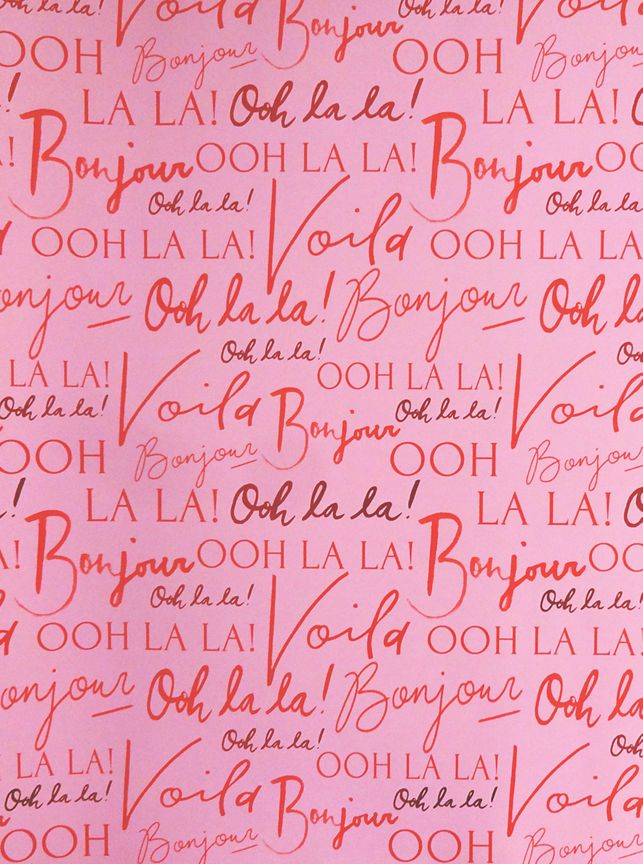 Ooh la la! Voila Bonjour Ooh la la! Voila
OOH Bonjour OOH Bonjour
LA LA! Ooh la la! LA LA!
Bonjour OOH LA LA! Bonjour OOH
Ooh la la! Ooh la la!
OOH LA LA! Voila OOH LA LA!
Bonjour Ooh la la! Bonjour Ooh la la!
Ooh la la!
LA LA! Voila OOH LA LA! Voila
Ooh la la! Bonjour Ooh la la!
OOH Bonjour OOH Bonjour
LA LA! Ooh la la! LA LA!
Bonjour OOH LA LA! Bonjour OOH
Ooh la la! Ooh la la!
OOH LA LA! Voila OOH LA LA!
Bonjour Ooh la la! Bonjour Ooh la la!
Ooh la la!
LA LA! Voila OOH LA LA! Voila
Ooh la la! Bonjour Ooh la la!
OOH Bonjour OOH Bonjour